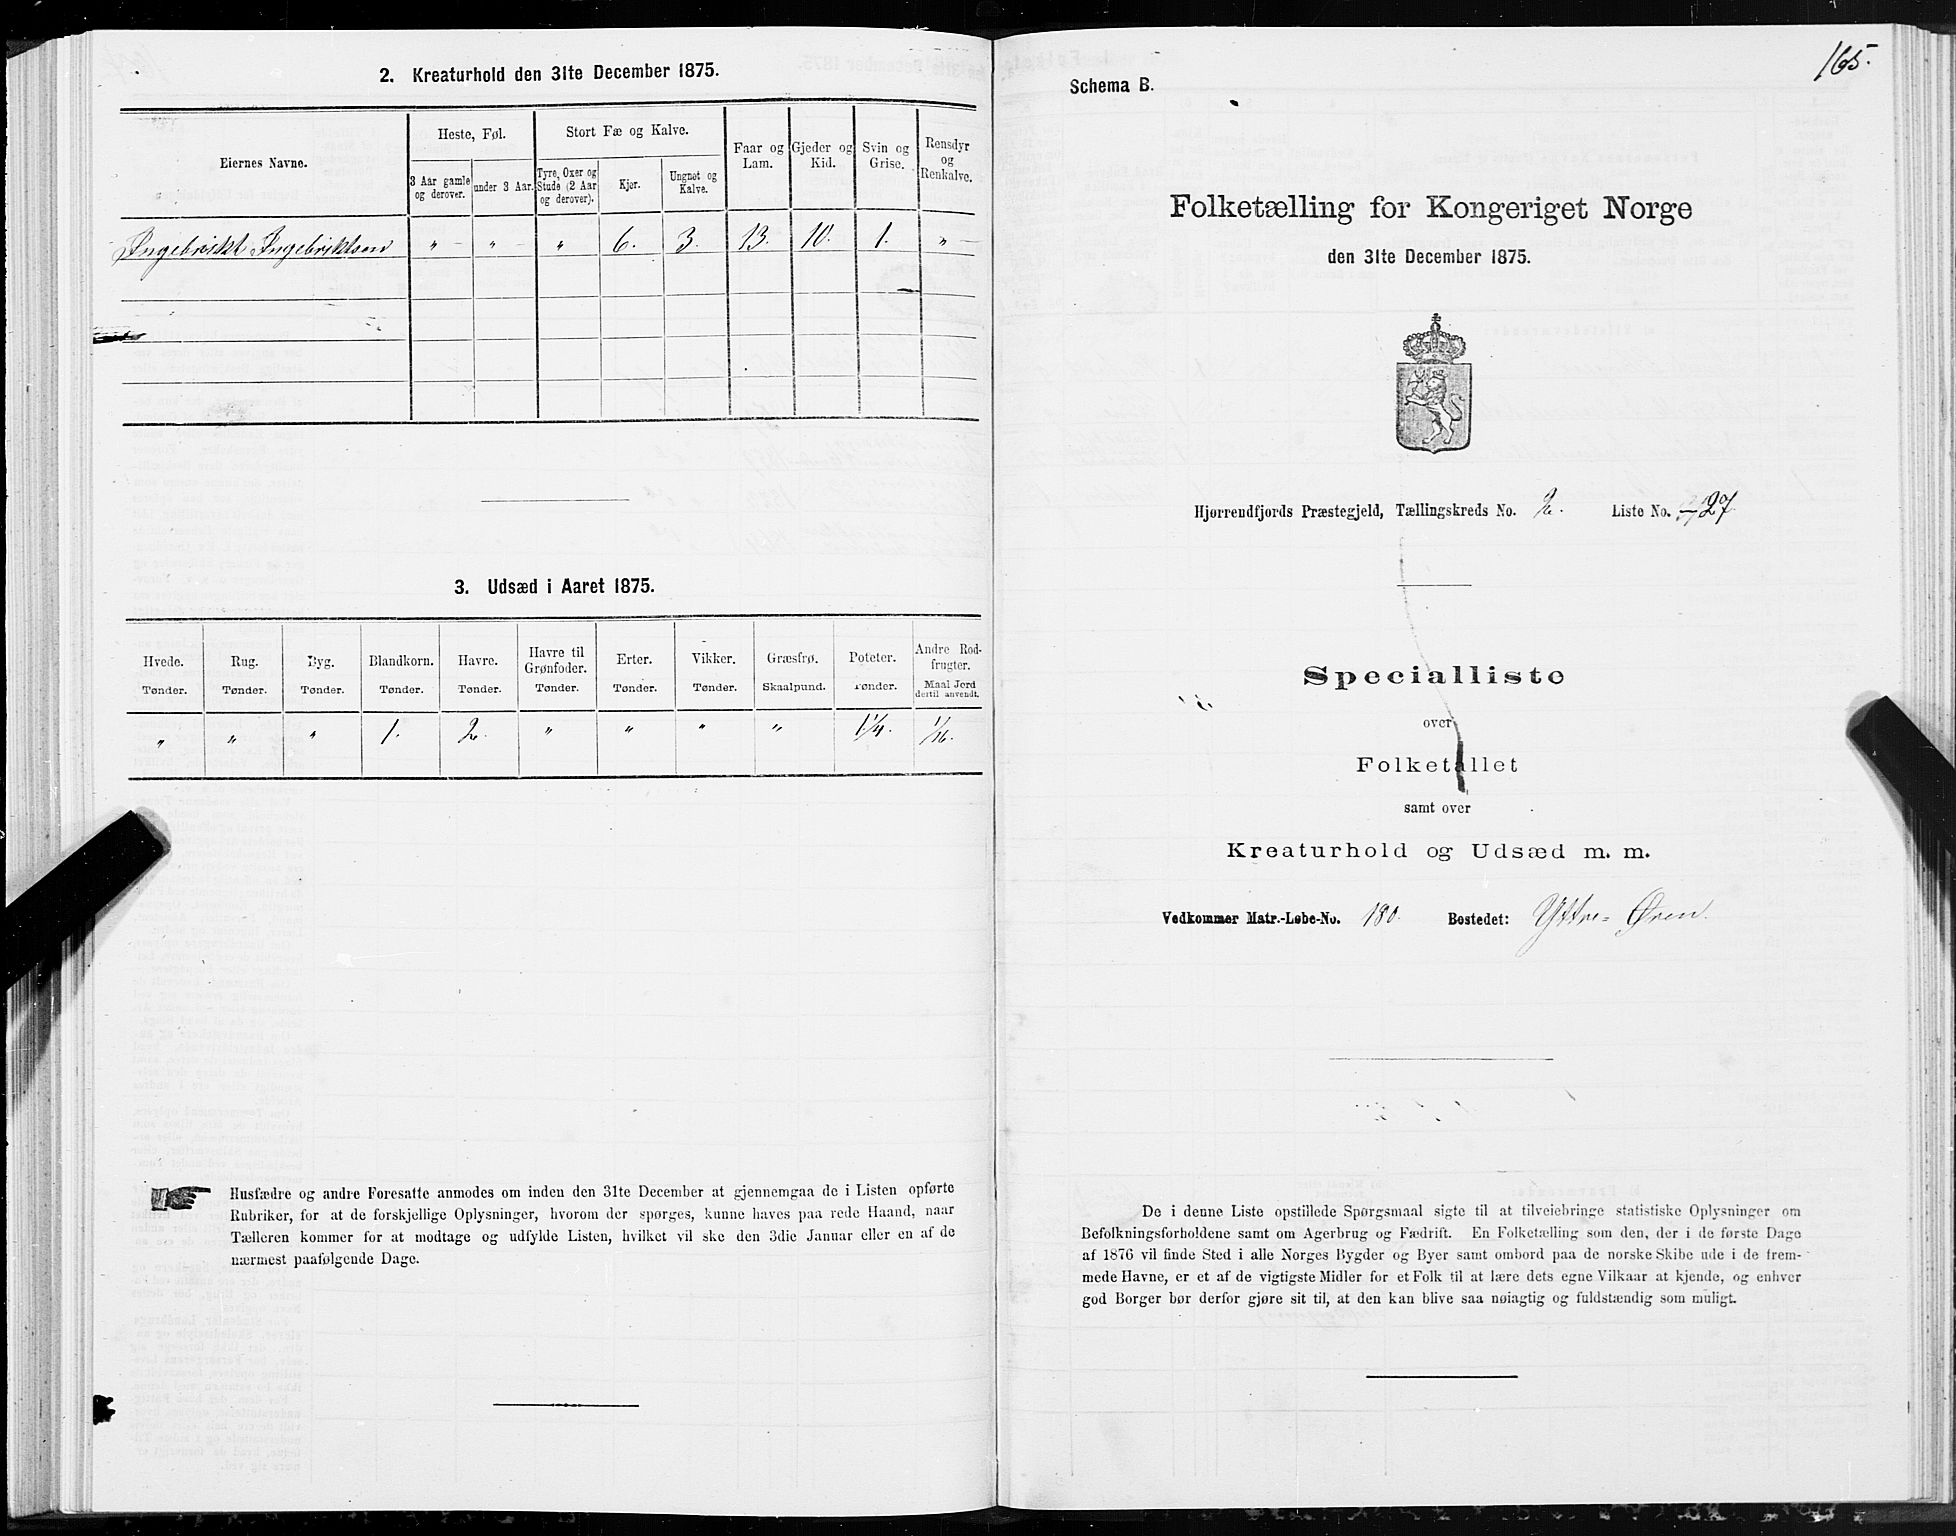 2. Kreaturhold den 31te December 1875.
Eiernes Navne.
Heste, Føl.
Stort Fæ og Kalve.
Faar og Lam.
Gjeder og Kid.
Svin og Grise.
Rensdyr og Renkalve.
3 Aar gamle og derover.
under 3 Aar.
Tyre, Oxer og Stude (2 Aar og derover).
Kjør.
Ungnøt og Kalve.
Ingebrikt Ingebriktsen " " " 6. 3. 13. 10. 1. "
3. Udsæd i Aaret 1875.
Hvede. Rug. Byg. Blandkorn. Havre. Havre til Grønfoder. Erter. Vikker. Græsfrø. Poteter. Andre Rodfrugter.
Tønder. Tønder. Tønder. Tønder. Tønder. Tønder. Tønder. Tønder. Skaalpund. Tønder. Maal Jord dertil anvendt.
" " " 1. 2. " " " " 1¼. 1/16.
Husfædre og andre Foresatte anmodes om inden den 31te December at gjennemgaa de i Listen opførte
Rubriker, for at de forskjellige Oplysninger, hvorom der spørges, kunne haves paa rede Haand, naar
Tælleren kommer for at modtage og udfylde Listen, hvilket vil ske den 3die Januar eller en af de
nærmest paafølgende Dage.
165.
Schema B.
Folketælling for Kongeriget Norge
den 31te December 1875.
Hjørrendfjords Præstegjeld, Tællingskreds No. 2. Liste No. 27
Specialliste
over
Folketallet
samt over
Kreaturhold og Udsæd m. m.
Vedkommer Matr.-Løbe-No. 180. Bostedet: Yttre-Øren.
De i denne Liste opstillede Spørgsmaal sigte til at tilveiebringe statistiske Oplysninger om
Befolkningsforholdene samt om Agerbrug og Fædrift. En Folketælling som den, der i de første Dage
af 1876 vil finde Sted i alle Norges Bygder og Byer samt ombord paa de norske Skibe ude i de frem-
mede Havne, er et af de vigtigste Midler for et Folk til at lære dets egne Vilkaar at kjende, og enhver
god Borger bør derfor gjøre sit til, at den kan blive saa nøiagtig og fuldstændig som muligt.